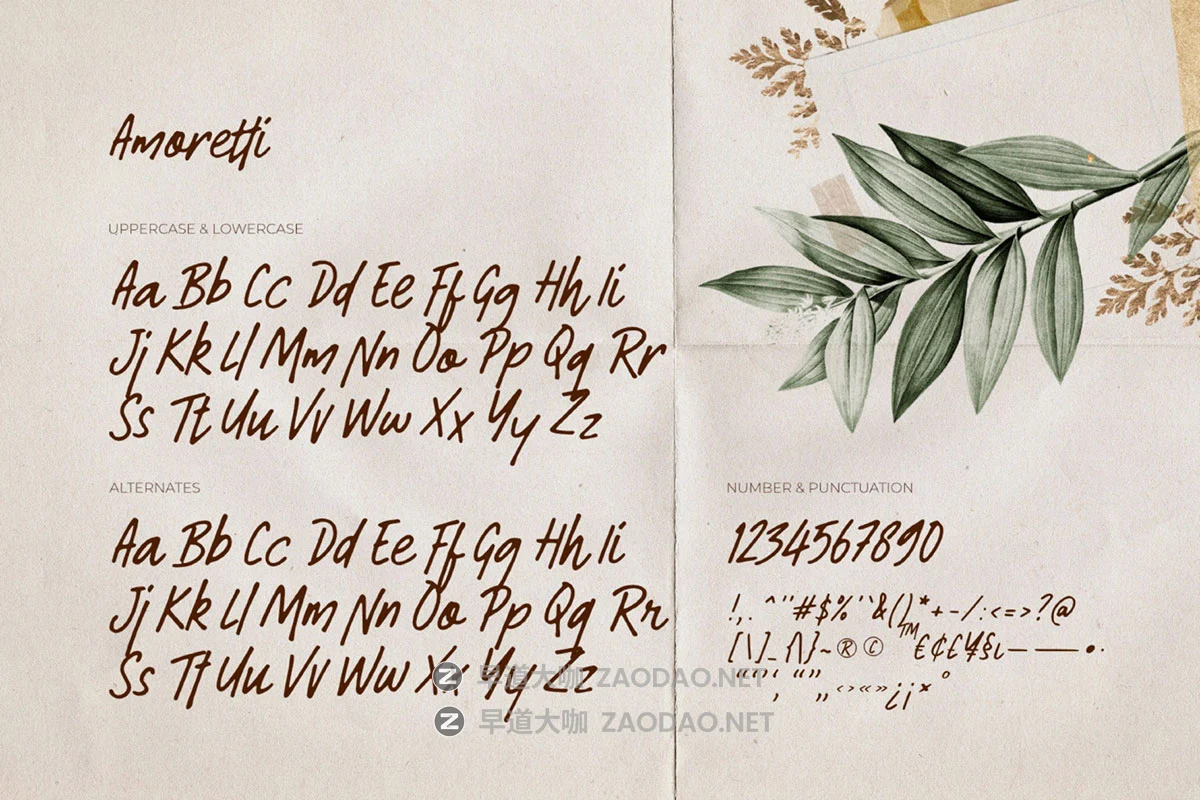 Amoretti
UPPERCASE & LOWERCASE
Aa Bb Cc Dd Ee Ff Gg Hh Ii
Jj Kk Ll Mm Nn Oo Pp Qq Rr
Ss Tt Uu Vv Ww Xx Yy Zz
ALTERNATES
Aa Bb Cc Dd Ee Ff Gg Hh Ii
Jj Kk Ll Mm Nn Oo Pp Qq Rr
Ss Tt Uu Vv Ww Xx Yy Zz
NUMBER & PUNCTUATION
1234567890
!,. ^"#$% '`&()*+-/:<=>?@
[\]_{\}~®© ™ €¢£¥§ — — •·
“‘’‚ “” „ ‹›«»¿¡× °
早道大咖 ZAODAO.NET
早道大咖 ZAODAO.NET